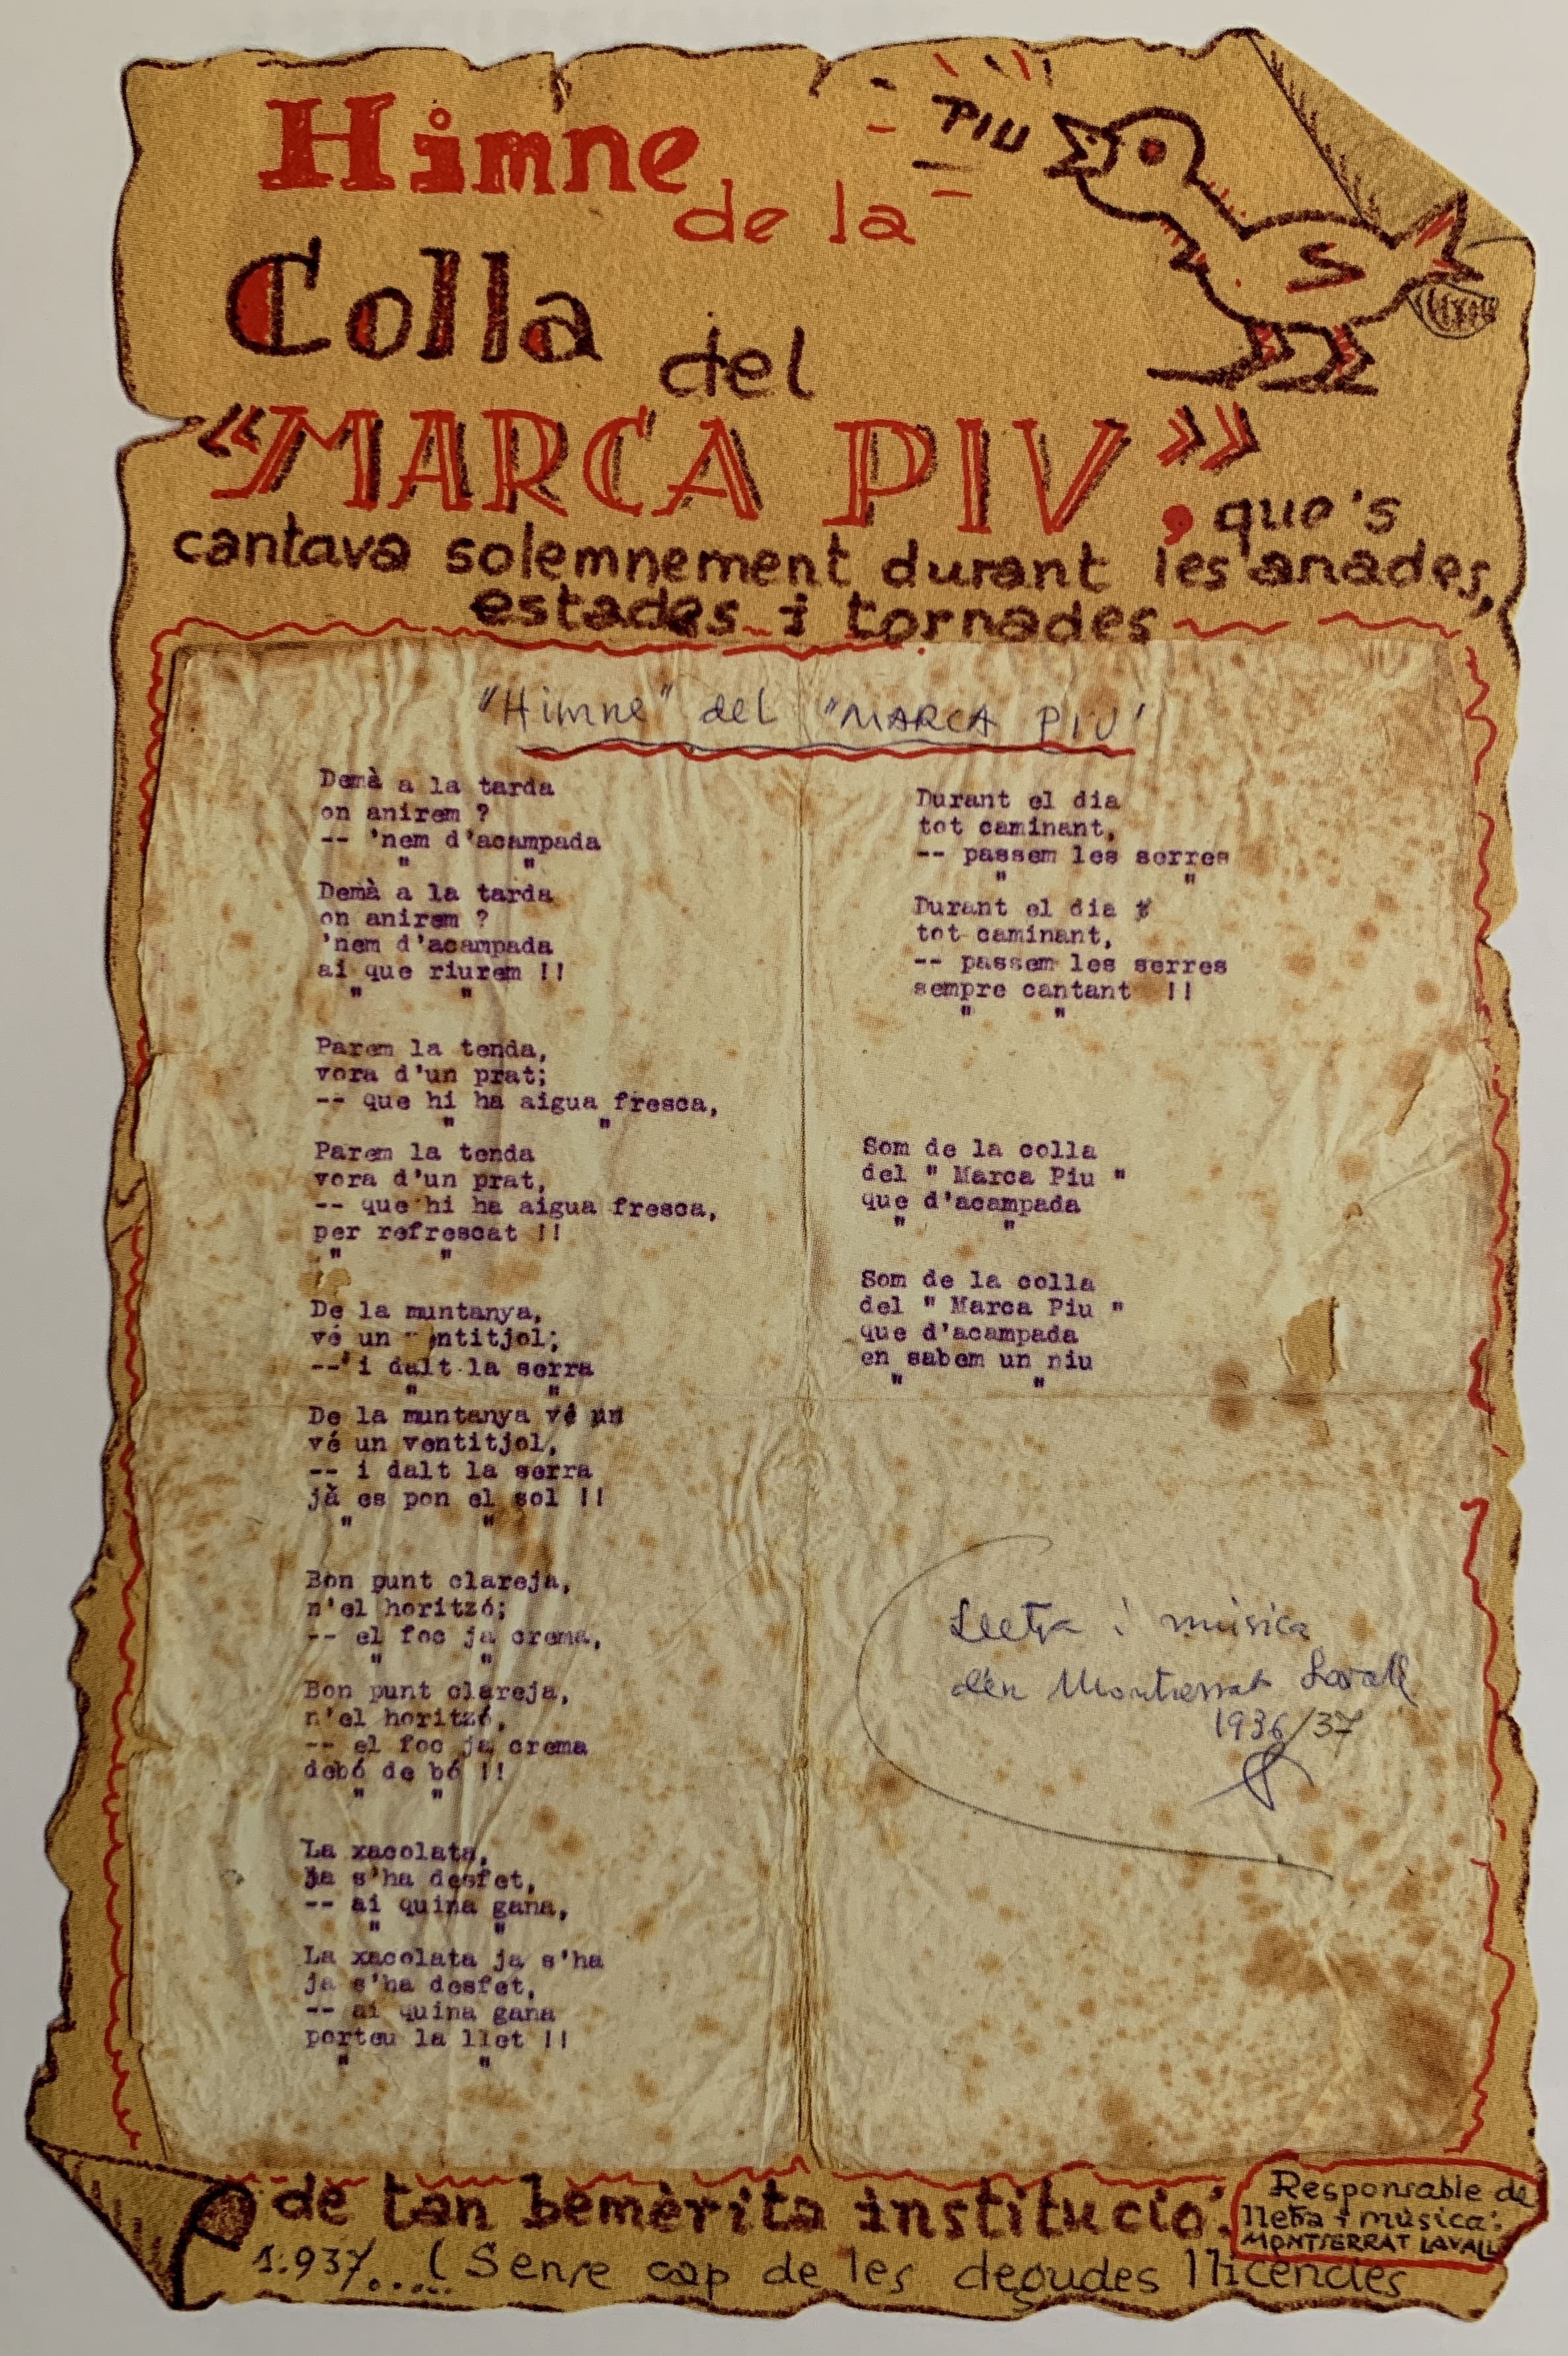 Himne
de la
PIU
Colla
del
"MARCA PIU", que's
cantava solemnement durant les anades,
estades i tornades
"Himne" del "MARCA PIU"
Demà a la tarda
on anirem ?
-- 'nem d'acampada
" "
Demà a la tarda
on anirem ?
'nem d'acampada
ai que riurem !!
" "
Parem la tenda,
vora d'un prat;
-- que hi ha aigua fresca,
" "
Parem la tenda
vora d'un prat,
-- que hi ha aigua fresca,
per refrescat !!
" "
De la muntanya,
vé un ntitjol;
-- i dalt la serra
" "
De la muntanya vé un
vé un ventitjol,
-- i dalt la serra
jà es pon el sol !!
" "
Bon punt clareja,
n'el horitzó;
-- el foc ja crema,
" "
Bon punt clareja,
n'el horitzó,
-- el foc ja crema
debó de bó !!
" "
La xacolata,
ja s'ha desfet,
-- ai quina gana,
" "
La xacolata ja s'ha
ja s'ha desfet,
-- ai quina gana
porteu la llet !!
" "
Durant el dia
tot caminant,
-- passem les serres
" "
Durant el dia
tot caminant,
-- passem les serres
sempre cantant !!
" "
Som de la colla
del " Marca Piu "
que d'acampada
" "
Som de la colla
del " Marca Piu "
que d'acampada
en sabem un niu
" "
Lletra i música
d'en Montserrat Lavall
1936/37
de tan bemèrita institució.
Responsable de
lletra i música:
MONTSERRAT LAVALL
1.937..... (Sense cap de les degudes llicències